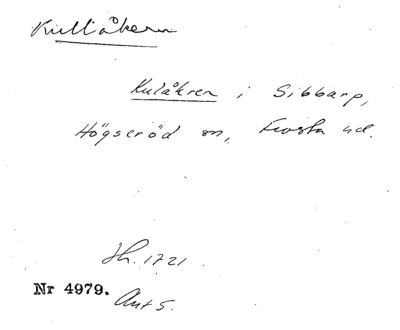 Kullåkern
Kulåkren i Sibbarp,
Högseröd sn, Frosta hd.
Sh. 1721.
Nr 4979.
Ant 5.